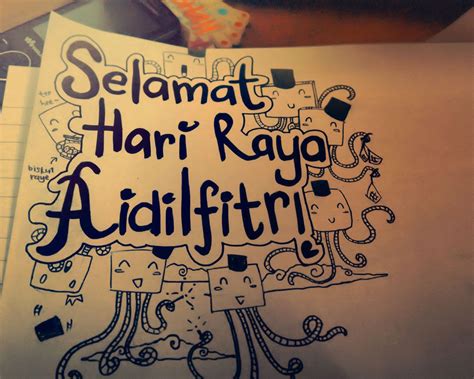 Selamat
Hari Raya
Aidilfitri!
biskut
raya